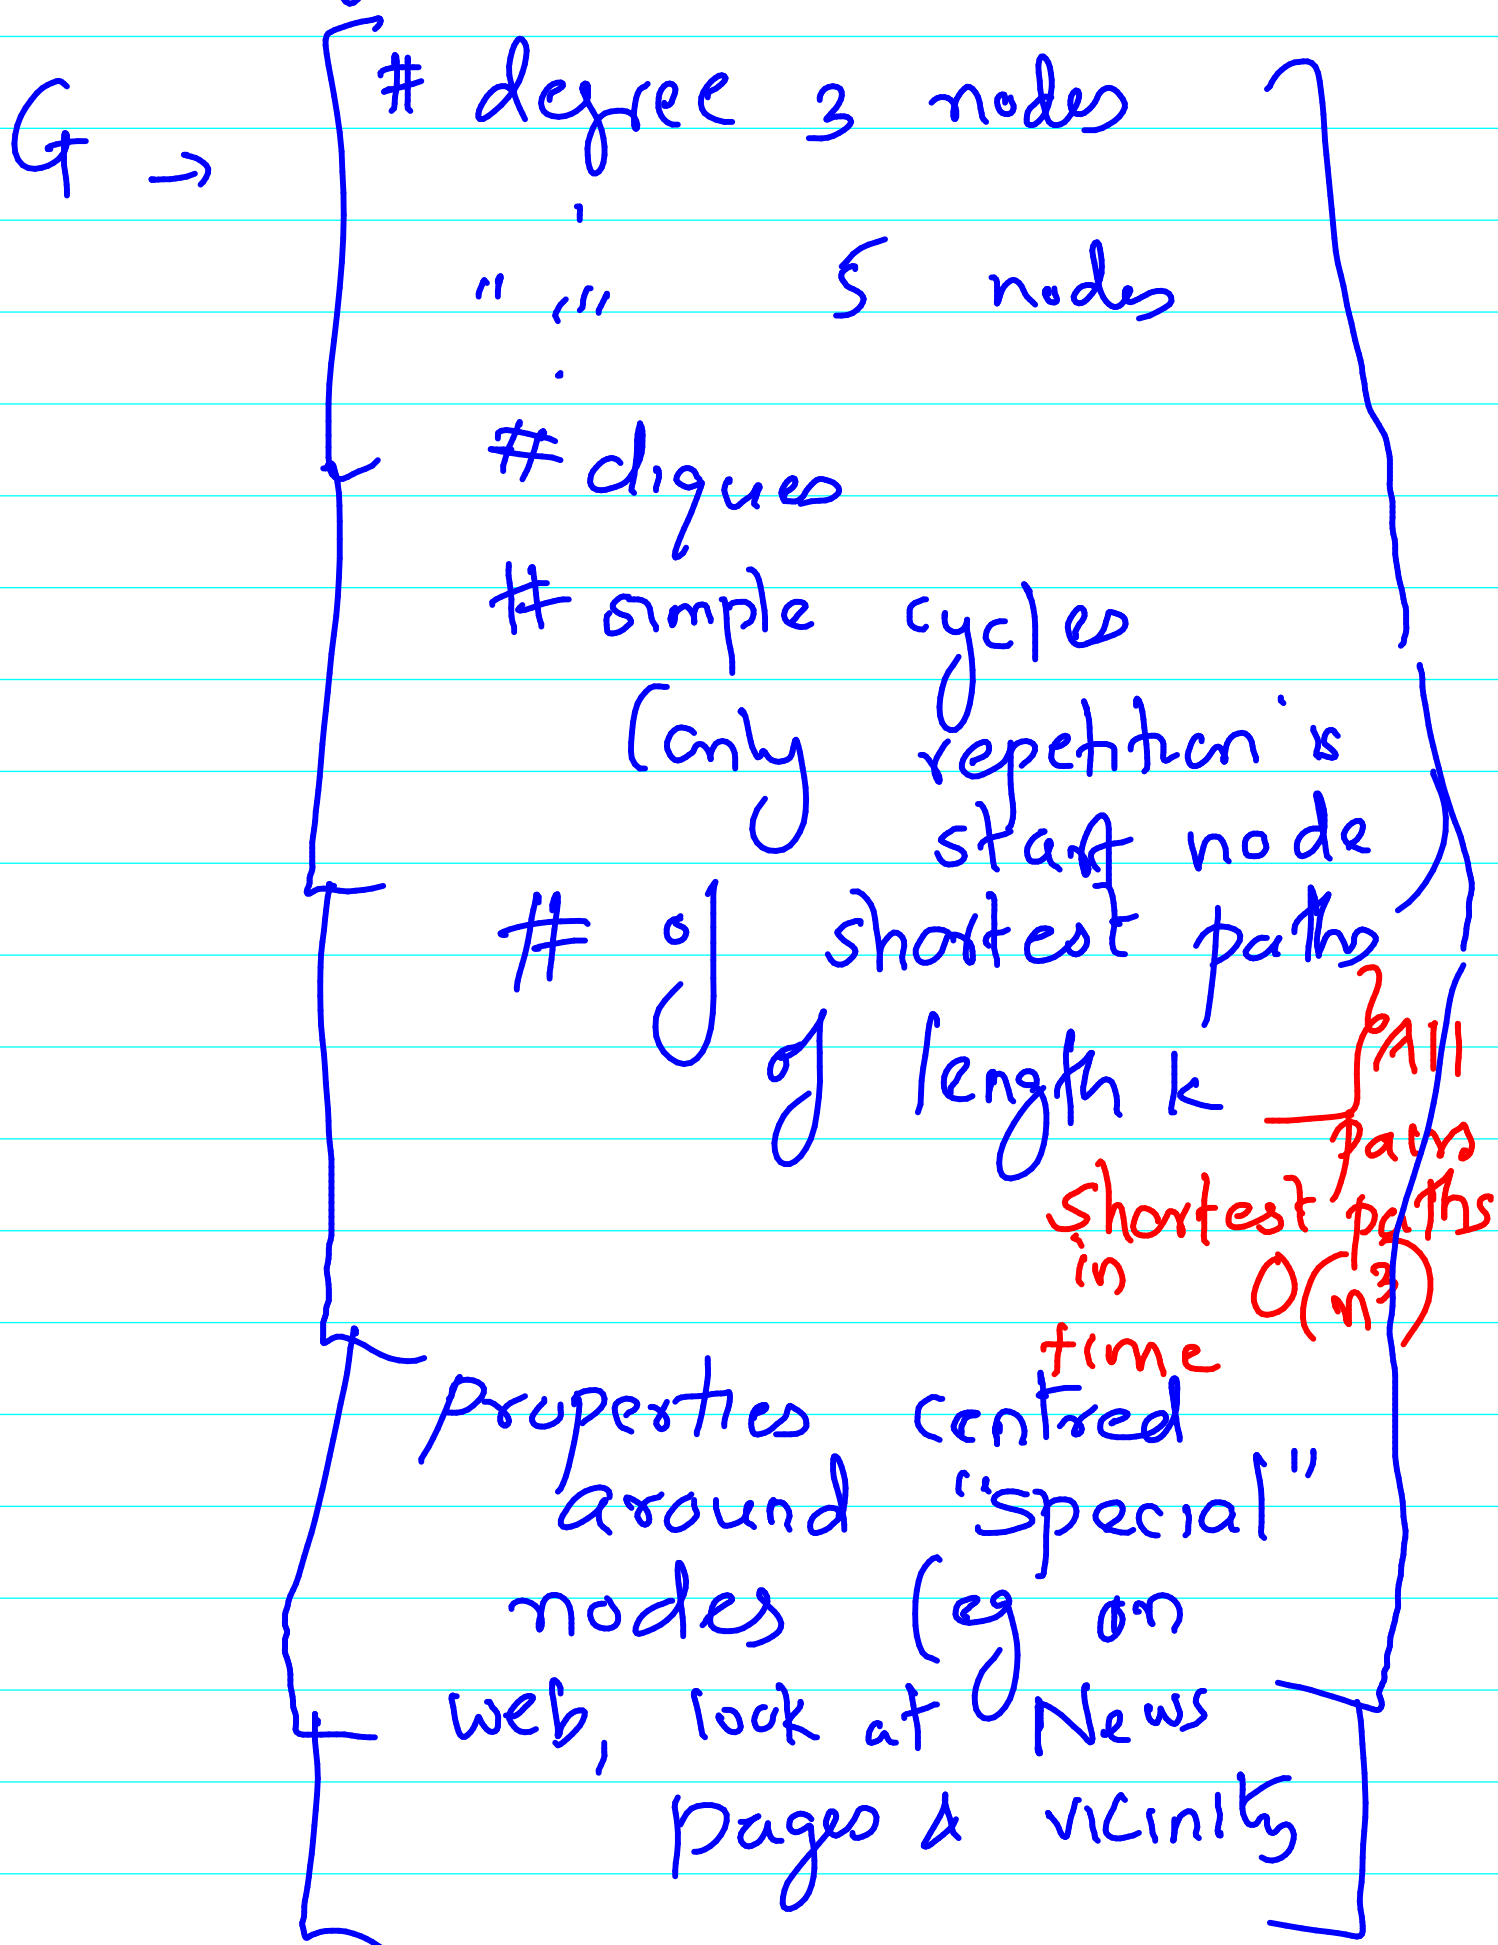 # degree 3 nodes
G →
" " 5 nodes
# cliques
# simple cycles
(only repetition is
start node)
# of shortest paths
of length k
All
pairs
shortest paths
in O(n³)
time
Properties centred
around "special"
nodes (eg on
web, look at News
pages & vicinity